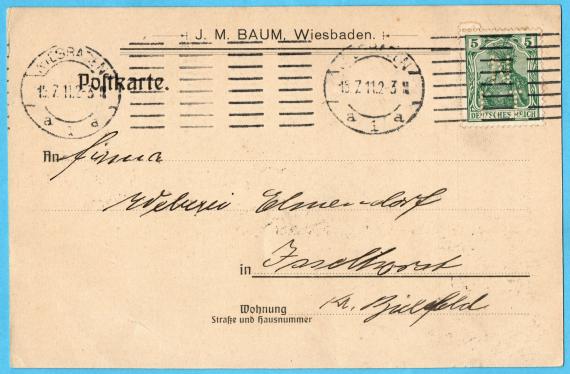 J. M. BAUM, Wiesbaden.
WIESBADEN
15.7.11.2-3 N
a 1 a
WIESBADEN
15.7.11.2-3 N
a 1 a
5 5
DEUTSCHES REICH
Postkarte.
An Firma
Weberei Elmendorf
in Isselhorst
Wohnung Kr. Bielefeld
Straße und Hausnummer